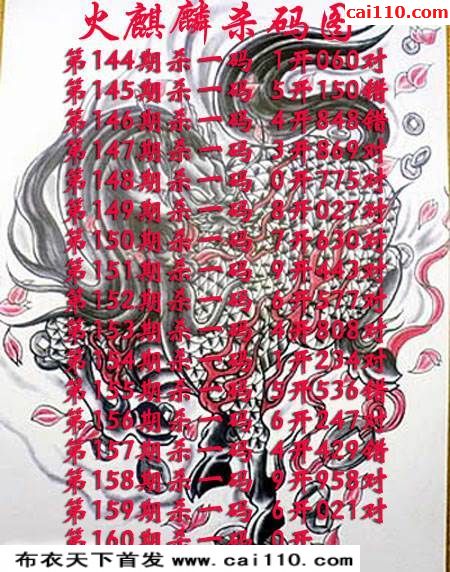 cai110.com
火麒麟杀码图
第144期杀一码 1开060对
第145期杀一码 5开150错
第146期杀一码 4开848错
第147期杀一码 3开869对
第148期杀一码 0开775对
第149期杀一码 8开027对
第150期杀一码 7开630对
第151期杀一码 9开443对
第152期杀一码 6开577对
第153期杀一码 4开808对
第154期杀一码 1开234对
第155期杀一码 5开536错
第156期杀一码 6开247对
第157期杀一码 4开429错
第158期杀一码 9开958对
第159期杀一码 6开021对
第160期杀一码 0开
布衣天下首发 www.cai110.com